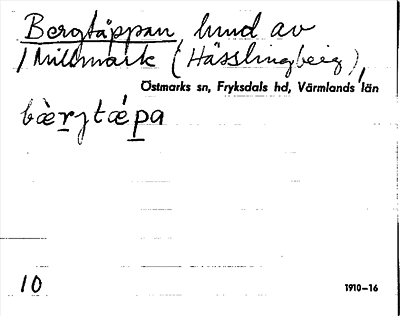 Bergtäppan, hund av
Millmark (Hässlingberg),
Östmarks sn, Fryksdals hd, Värmlands län
bæ̀rgtǽpa
10
1910–16